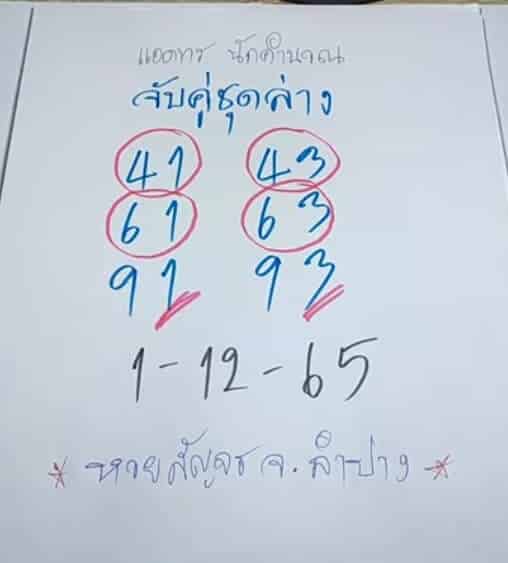 แอดทร นักคำนวณ
จับคู่ชุดล่าง
41 43
61 63
91 93
1-12-65
* หวยสัญจร จ. ลำปาง *